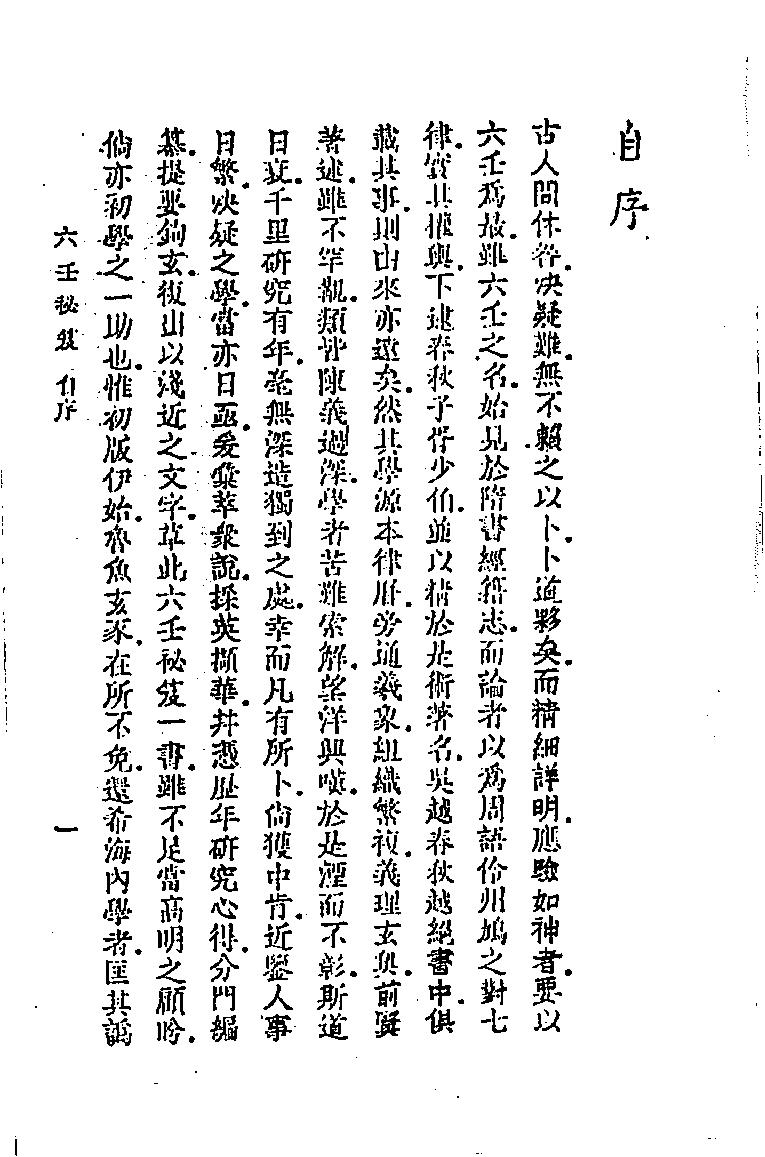 自序
古人問休咎。決疑難。無不賴之以卜。卜道夥矣。而精細詳明。應驗如神者。要以
六壬爲最。雖六壬之名。始見於隋書經籍志。而論者以爲周語伶州鳩之對七
律。實其權輿。下逮春秋子胥少伯。並以精於是術著名。吳越春秋越絕書中。俱
載其事。則由來亦遠矣。然其學源本律曆。旁通羲象。組織繁複。義理玄奧。前賢
著述。雖不罕覯。類皆陳義過深。學者苦難索解。望洋興嘆。於是湮而不彰。斯道
日衰。千里研究有年。毫無深造獨到之處。幸而凡有所卜。尙獲中肯。近鑒人事
日繁。決疑之學。當亦日亟。爰彙萃衆說。採英擷華。幷憑歷年研究心得。分門編
纂。提要鉤玄。復出以淺近之文字。草此六壬祕笈一書。雖不足當高明之顧盼。
倘亦初學之一助也。惟初版伊始。魯魚玄豕。在所不免。還希海內學者。匡其譌
六壬祕笈 自序
一